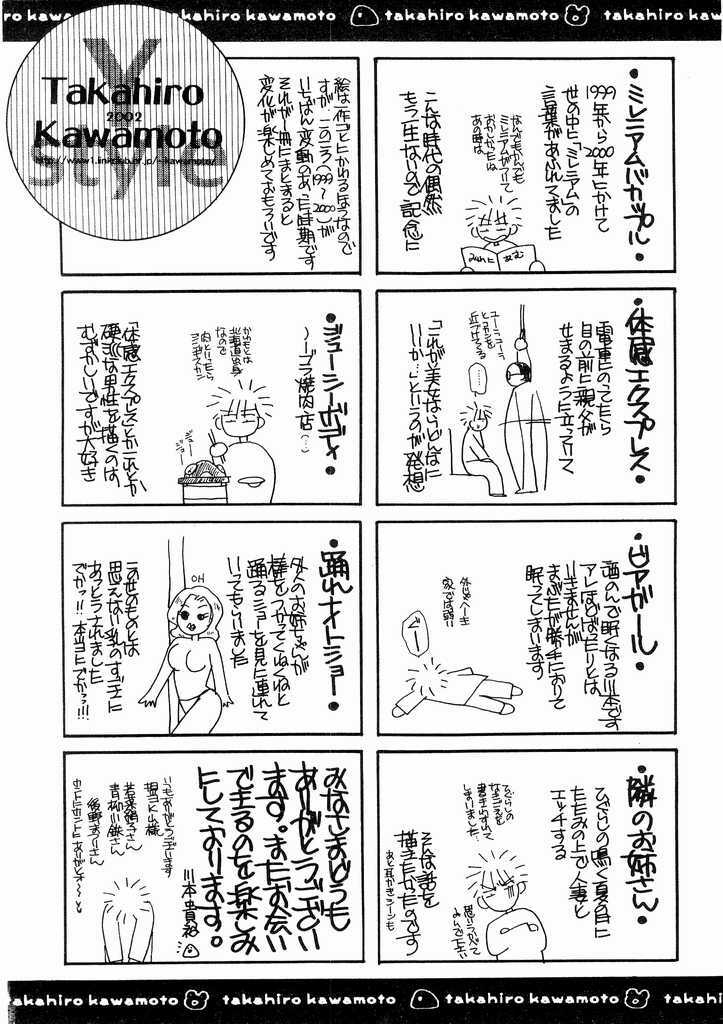 ro kawamoto takahiro kawamoto takahiro kawa
Y
style
Takahiro
2002
Kawamoto
・ミレニアムバカップル・
1999年から2000年にかけて
世の中に「ミレニアム」の
言葉があふれてました
なんでもかんでも
ミレニアムがついて
おかしかったね
あの時は
こんな時代の偶然
もう一生ないので記念に
みれに
あむ
絵は一作ごとにかわるほうなので
すが、このころ(1999〜2000)が
いちばん変動のあった時期です
それが一冊にまとまると
変化が楽しめておもろいです
・体感エクスプレス・
電車にのってたら
目の前に親父が
せまるように立ってて
ユーラユーラ
とコカンを
近づけてくる
「これが美女ならどんなに
いーか…」というのが発想
・ジューシーボディ・
〜ノーブラ焼肉店〜
かわもとは
北海道出身
なので
肉といったら
ジンギスカン
ジュー
ジュー
「体感エクスプレス」とかこれとか
硬派な男性を描くのは
むずかしいですが大好き
・ビアガール・
酒のんで眠くなる川本です
アレはのばったりとは
いきませんが
まぶたが勝手におりて
眠ってしまいます
外じゃへーき
家では弱い
ぐー
・踊れナイトショー・
外人のお姉ちゃんが
棒をつかってくねくねと
踊るショーを見に連れて
いってもらいました
OH
この世のものとは
思えない乳のすごさに
あっとうされました
でかっ!!本当にでかっ!!!
・隣のお姉さん・
ひぐらしの鳴く夏の日に
たたみの上で人妻と
エッチする
ひぐらしの
なきごえを
書きわすれて
しまいました…
そんな話を
描きたかったのです
あと耳かきシーンも
思いうかべて
よんで下さい
みなさまどうも
ありがとうござい
ます。またお会い
できるのを楽しみ
にしております。
川本貴裕
いつもありがとうございます
青柳小鉄さん
ホントにホントにありがとネ〜
takahiro kawamoto takahiro kawamoto takahiro kawamoto